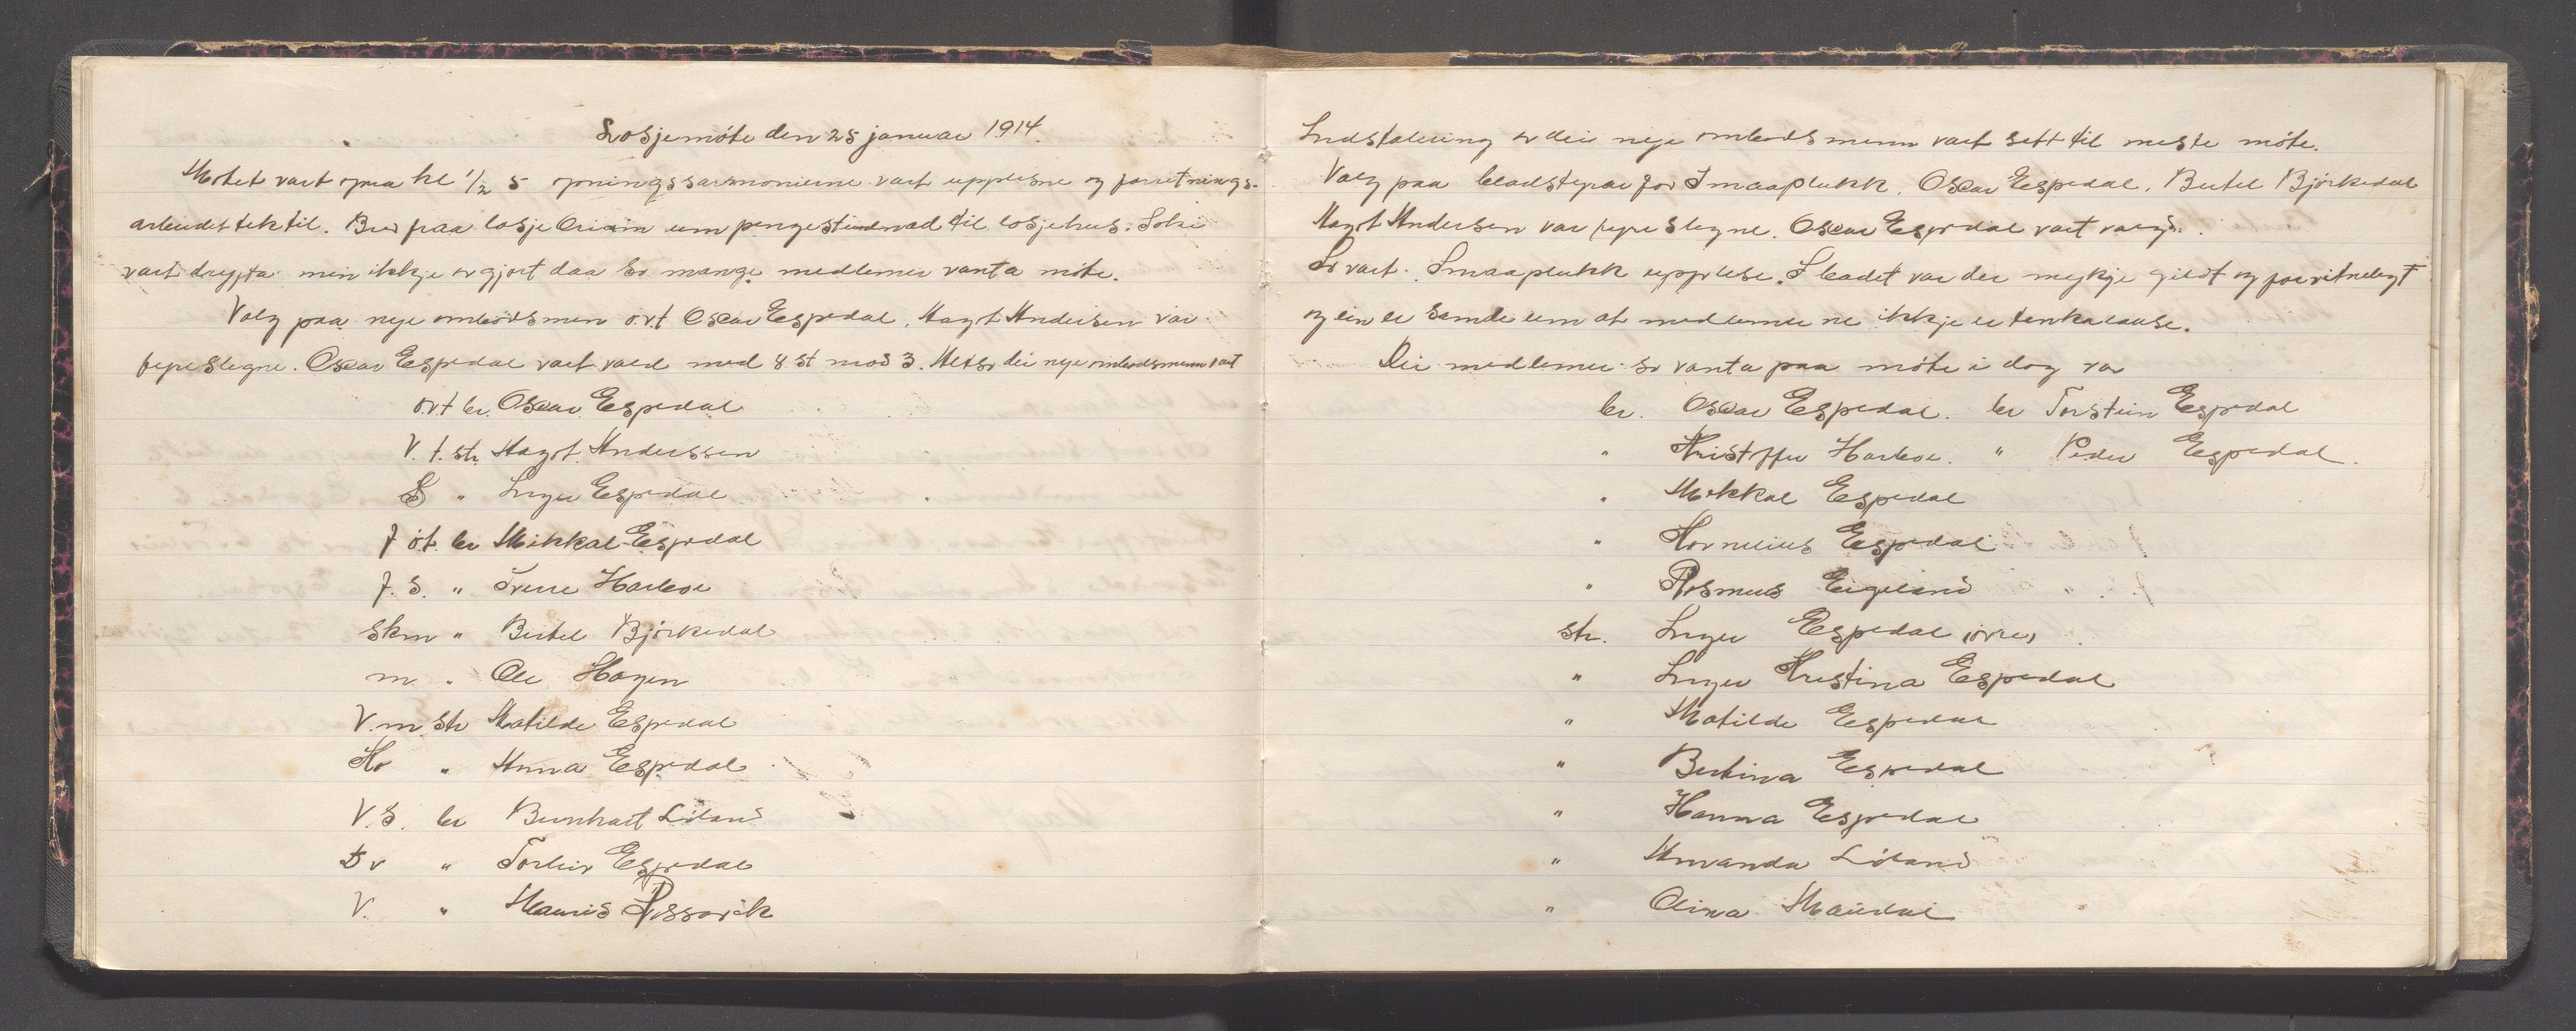 Losjemöte den 25 januar 1914.
Motet vart opna kl 1/2 5 opningssarmonierne vart upplesne og forretnings-
arbeidet tek til. Brev fraa losje um pengestudnad til losjehus. Soki
vart drygta men ikkje avgjort daa so mange medlemer vanta möte.
Valg paa nye ombodsmen o.v.t Oscar Espedal, Magot Andersen var
fyreslegne. Oscar Espedal vart vald med 8 st mod 3. Alt so dei nye ombodsmenn vart
o.v.t br. Oscar Espedal
V. t. str. Magot Anderssen
S " Inger Espedal
f o.t. br Mikkal Espedal
f. S. " Sverre Harboe
skm " Bertel Björkedal
m. " Ole Hagen
V.m. str Matilde Espedal
Kv " Anna Espedal
V. S. br Bernhart Liland
Dv " Torleiv Espedal
V. " Mauris Rossavik
Indstalering av dei nye ombodsmenn vart sett til neste möte.
Valg paa bladstyrar for Smaaplukk. Oscar Espedal, Bertel Björkedal
Magot Andersen var fyreslegne. Oscar Espedal vart valgd.
So vart Smaaplukk upplese. I bladet var der mykje gildt og forvitnelegt
og ein er samde um at medlemerne ikkje er tankalause.
Dei medlemer so vanta paa möte i dag var
br. Oscar Espedal. br Torstein Espedal
" Kristoffer Harboe. " Peder Espedal.
" Mikkal Espedal
" Kornelius Espedal
" Rasmus Eigeland
str. Inger Espedal (övre)
" Inger Kristina Espedal
" Matilde Espedal
" Bertina Espedal
" Hanna Espedal
" Amanda Liland
" Olina Maudal